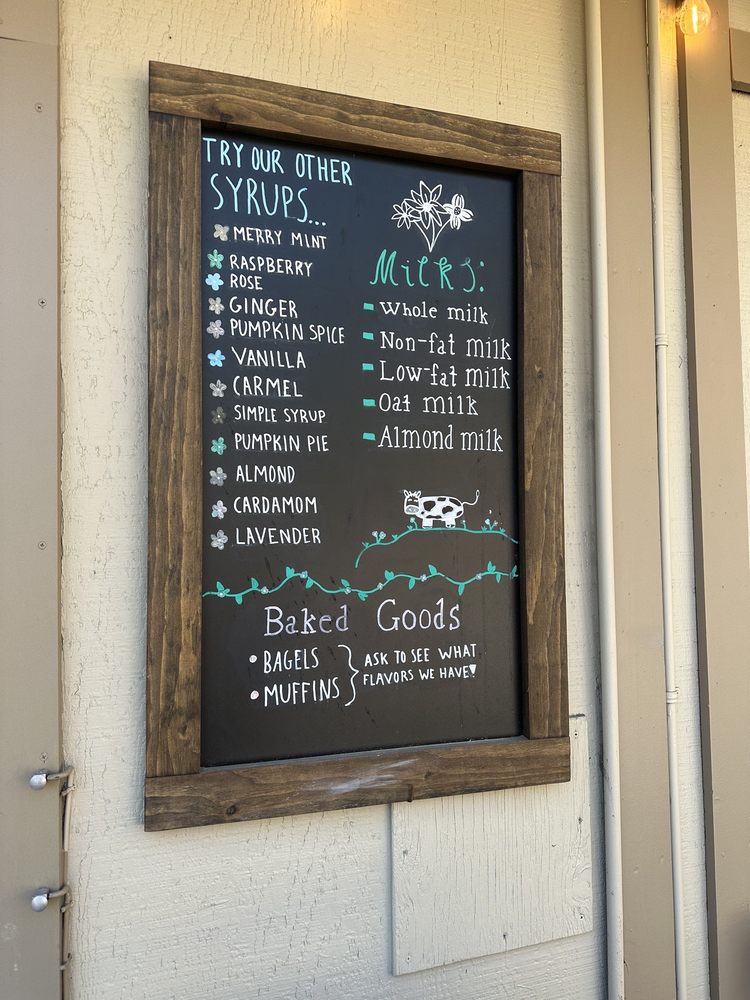 TRY OUR OTHER
SYRUPS...
MERRY MINT
RASPBERRY
ROSE
GINGER
PUMPKIN SPICE
VANILLA
CARMEL
SIMPLE SYRUP
PUMPKIN PIE
ALMOND
CARDAMOM
LAVENDER
Milks:
- Whole milk
- Non-fat milk
- Low-fat milk
- Oat milk
- Almond milk
Baked Goods
• BAGELS
• MUFFINS
ASK TO SEE WHAT
FLAVORS WE HAVE!